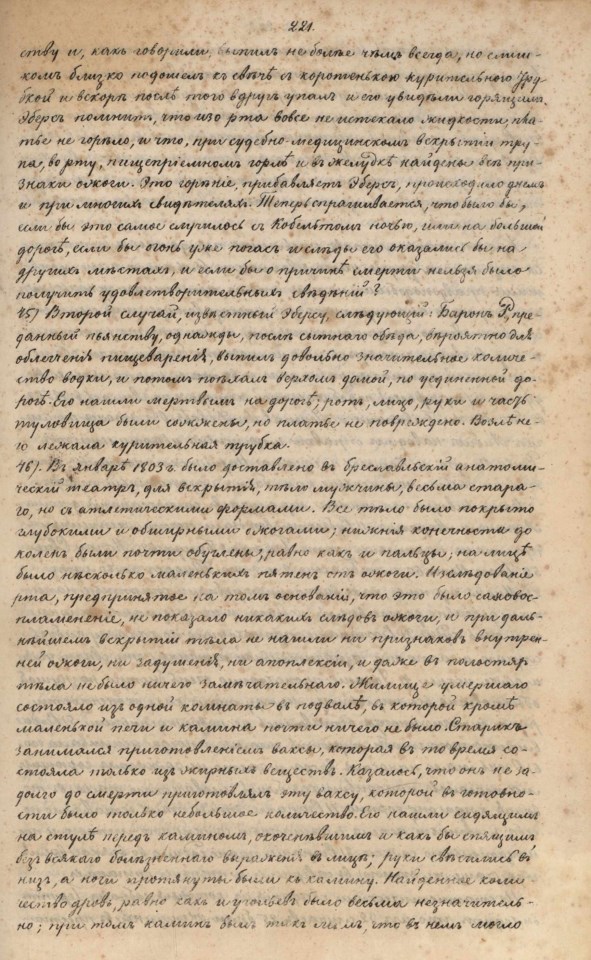 221.
ству и, какъ говорили, выпилъ не болѣе чѣмъ всегда, но слиш-
комъ близко подошелъ къ свѣчѣ съ коротенькою курительного тру-
бкой и вскорѣ послѣ того вдругъ упалъ и его увидѣли горящимъ.
Эберсъ помнитъ, что изо рта вовсе не истекало жидкости, пла-
тье не горѣло, и что, при судебно-медицинскомъ вскрытіи тру-
па, во рту, пищепріемномъ горлѣ и въ желудкѣ найдены безъ при-
знаки ожоги. Это горѣніе, прибавляетъ Эберсъ, происходило днемъ
и при многихъ свидѣтеляхъ. Теперь спрашивается, что было бы,
если бы это самое случилось съ Кобельтомъ ночью, или на большой
дорогѣ, если бы огонь уже погасъ и слѣды его оказались бы на
другихъ мѣстахъ, и если бы о причинѣ смерти нельзя было
получить удовлетворительныхъ свѣдѣній?
45) Второй случай, извѣстный Эберсу, слѣдующій: Баронъ Р, пре-
данный пьянству, однажды, послѣ сытнаго обѣда, вѣроятно для
облегченія пищеваренія, выпилъ довольно значительное количе-
ство водки, и потомъ поѣхалъ верхомъ домой, по уединенной до-
рогѣ. Его нашли мертвымъ на дорогѣ; ротъ, лицо, руки и часть
туловища были сожжены, но платье не повреждено. Возлѣ не-
го лежала курительная трубка.
46). Въ январѣ 1803 г. было доставлено въ бреславльскій анатоми-
ческій театръ, для вскрытія, тѣло мужчины, весьма стара-
го, но съ атлетическими формами. Все тѣло было покрыто
глубокими и обширными ожогами; нижнія конечности до
колѣнъ были почти обуглены, равно какъ и пальцы; на лицѣ
было нѣсколько маленькихъ пятенъ отъ ожоги. Изслѣдованіе
рта, предпринятое на томъ основаніи, что это было самовос-
пламененіе, не показало никакихъ слѣдовъ ожоги, и при даль-
нѣйшемъ вскрытіи тѣла не нашли ни признаковъ внутрен-
ней ожоги, ни задушенія, ни апоплексіи, и даже въ полостяхъ
тѣла не было ничего замѣчательнаго. Жилище умершаго
состояло изъ одной комнаты въ подвалѣ, въ которой кромѣ
маленькой печи и камина почти ничего не было. Старикъ
занимался приготовленіемъ ваксы, которая въ то время со-
стояла только изъ жирныхъ веществъ. Казалось, что онъ не за-
долго до смерти приготовлялъ эту ваксу, которой въ готовно-
сти было только небольшое количество. Его нашли сидящимъ
на стулѣ передъ каминомъ, окоченѣвшимъ и какъ бы спящимъ
безъ всякаго болѣзненнаго выраженія въ лицѣ; руки свѣсились в-
низъ, а ноги протянуты были къ камину. Найденное коли-
чество дровъ, равно какъ и угольевъ было весьма незначитель-
но; при томъ каминъ былъ такъ малъ, что въ немъ могло